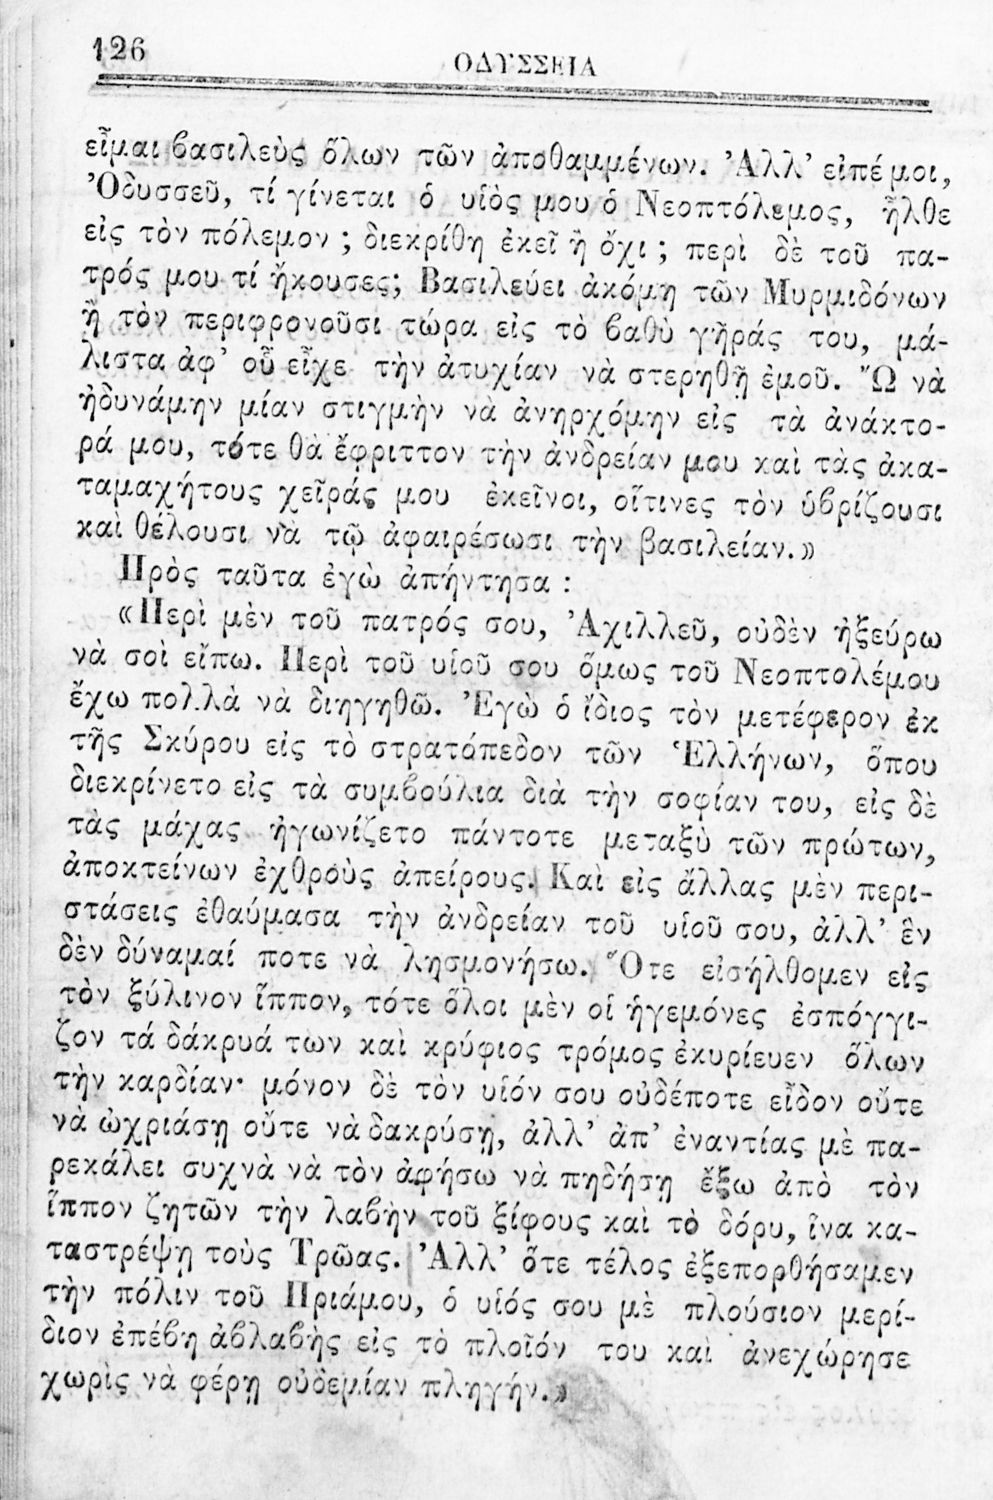 126
ΟΔΥΣΣΕΙΑ
εἶμαι βασιλεὺς ὅλων τῶν ἀποθαμμένων. Ἀλλ’ εἰπέ μοι,
Ὀδυσσεῦ, τί γίνεται ὁ υἱὸς μου ὁ Νεοπτόλεμος, ἦλθε
εἰς τὸν πόλεμον ; διεκρίθη ἐκεῖ ἢ ὄχι ; περὶ δὲ τοῦ πα-
τρός μου τί ἤκουσες; Βασιλεύει ἀκόμη τῶν Μυρμιδόνων
ἢ τὸν περιφρονοῦσι τώρα εἰς τὸ βαθὺ γῆράς του, μά-
λιστα ἀφ’ οὗ εἶχε τὴν ἀτυχίαν νὰ στερηθῇ ἐμοῦ. Ὢ νὰ
ἠδυνάμην μίαν στιγμὴν νὰ ἀνηρχόμην εἰς τὰ ἀνάκτο-
ρά μου, τότε θὰ ἔφριττον τὴν ἀνδρείαν μου καὶ τὰς ἀκα-
ταμαχήτους χεῖράς μου ἐκεῖνοι, οἵτινες τὸν ὑβρίζουσι
καὶ θέλουσι νὰ τῷ ἀφαιρέσωσι τὴν βασιλείαν.»
Πρὸς ταῦτα ἐγὼ ἀπήντησα :
«Περὶ μὲν τοῦ πατρός σου, Ἀχιλλεῦ, οὐδὲν ἠξεύρω
νὰ σοὶ εἴπω. Περὶ τοῦ υἱοῦ σου ὅμως τοῦ Νεοπτολέμου
ἔχω πολλὰ νὰ διηγηθῶ. Ἐγὼ ὁ ἴδιος τὸν μετέφερον ἐκ
τῆς Σκύρου εἰς τὸ στρατόπεδον τῶν Ἑλλήνων, ὅπου
διεκρίνετο εἰς τὰ συμβούλια διὰ τὴν σοφίαν του, εἰς δὲ
τὰς μάχας ἠγωνίζετο πάντοτε μεταξὺ τῶν πρώτων,
ἀποκτείνων ἐχθροὺς ἀπείρους. Καὶ εἰς ἄλλας μὲν περι-
στάσεις ἐθαύμασα τὴν ἀνδρείαν τοῦ υἱοῦ σου, ἀλλ’ ἓν
δὲν δύναμαί ποτε νὰ λησμονήσω. Ὅτε εἰσήλθομεν εἰς
τὸν ξύλινον ἵππον, τότε ὅλοι μὲν οἱ ἡγεμόνες ἐσπόγγι-
ζον τά δάκρυά των καὶ κρύφιος τρόμος ἐκυρίευεν ὅλων
τὴν καρδίαν· μόνον δὲ τὸν υἱόν σου οὐδέποτε εἶδον οὔτε
νὰ ὠχριάσῃ οὔτε νὰ δακρύσῃ, ἀλλ’ ἀπ’ ἐναντίας μὲ πα-
ρεκάλει συχνὰ νὰ τὸν ἀφήσω νὰ πηδήσῃ ἔξω ἀπὸ τὸν
ἵππον ζητῶν τὴν λαβὴν τοῦ ξίφους καὶ τὸ δόρυ, ἵνα κα-
ταστρέψῃ τοὺς Τρῶας. Ἀλλ’ ὅτε τέλος ἐξεπορθήσαμεν
τὴν πόλιν τοῦ Πριάμου, ὁ υἱός σου μὲ πλούσιον μερί-
διον ἐπέβη ἀβλαβὴς εἰς τὸ πλοῖόν του καὶ ἀνεχώρησε
χωρὶς νὰ φέρῃ οὐδεμίαν πληγήν.»